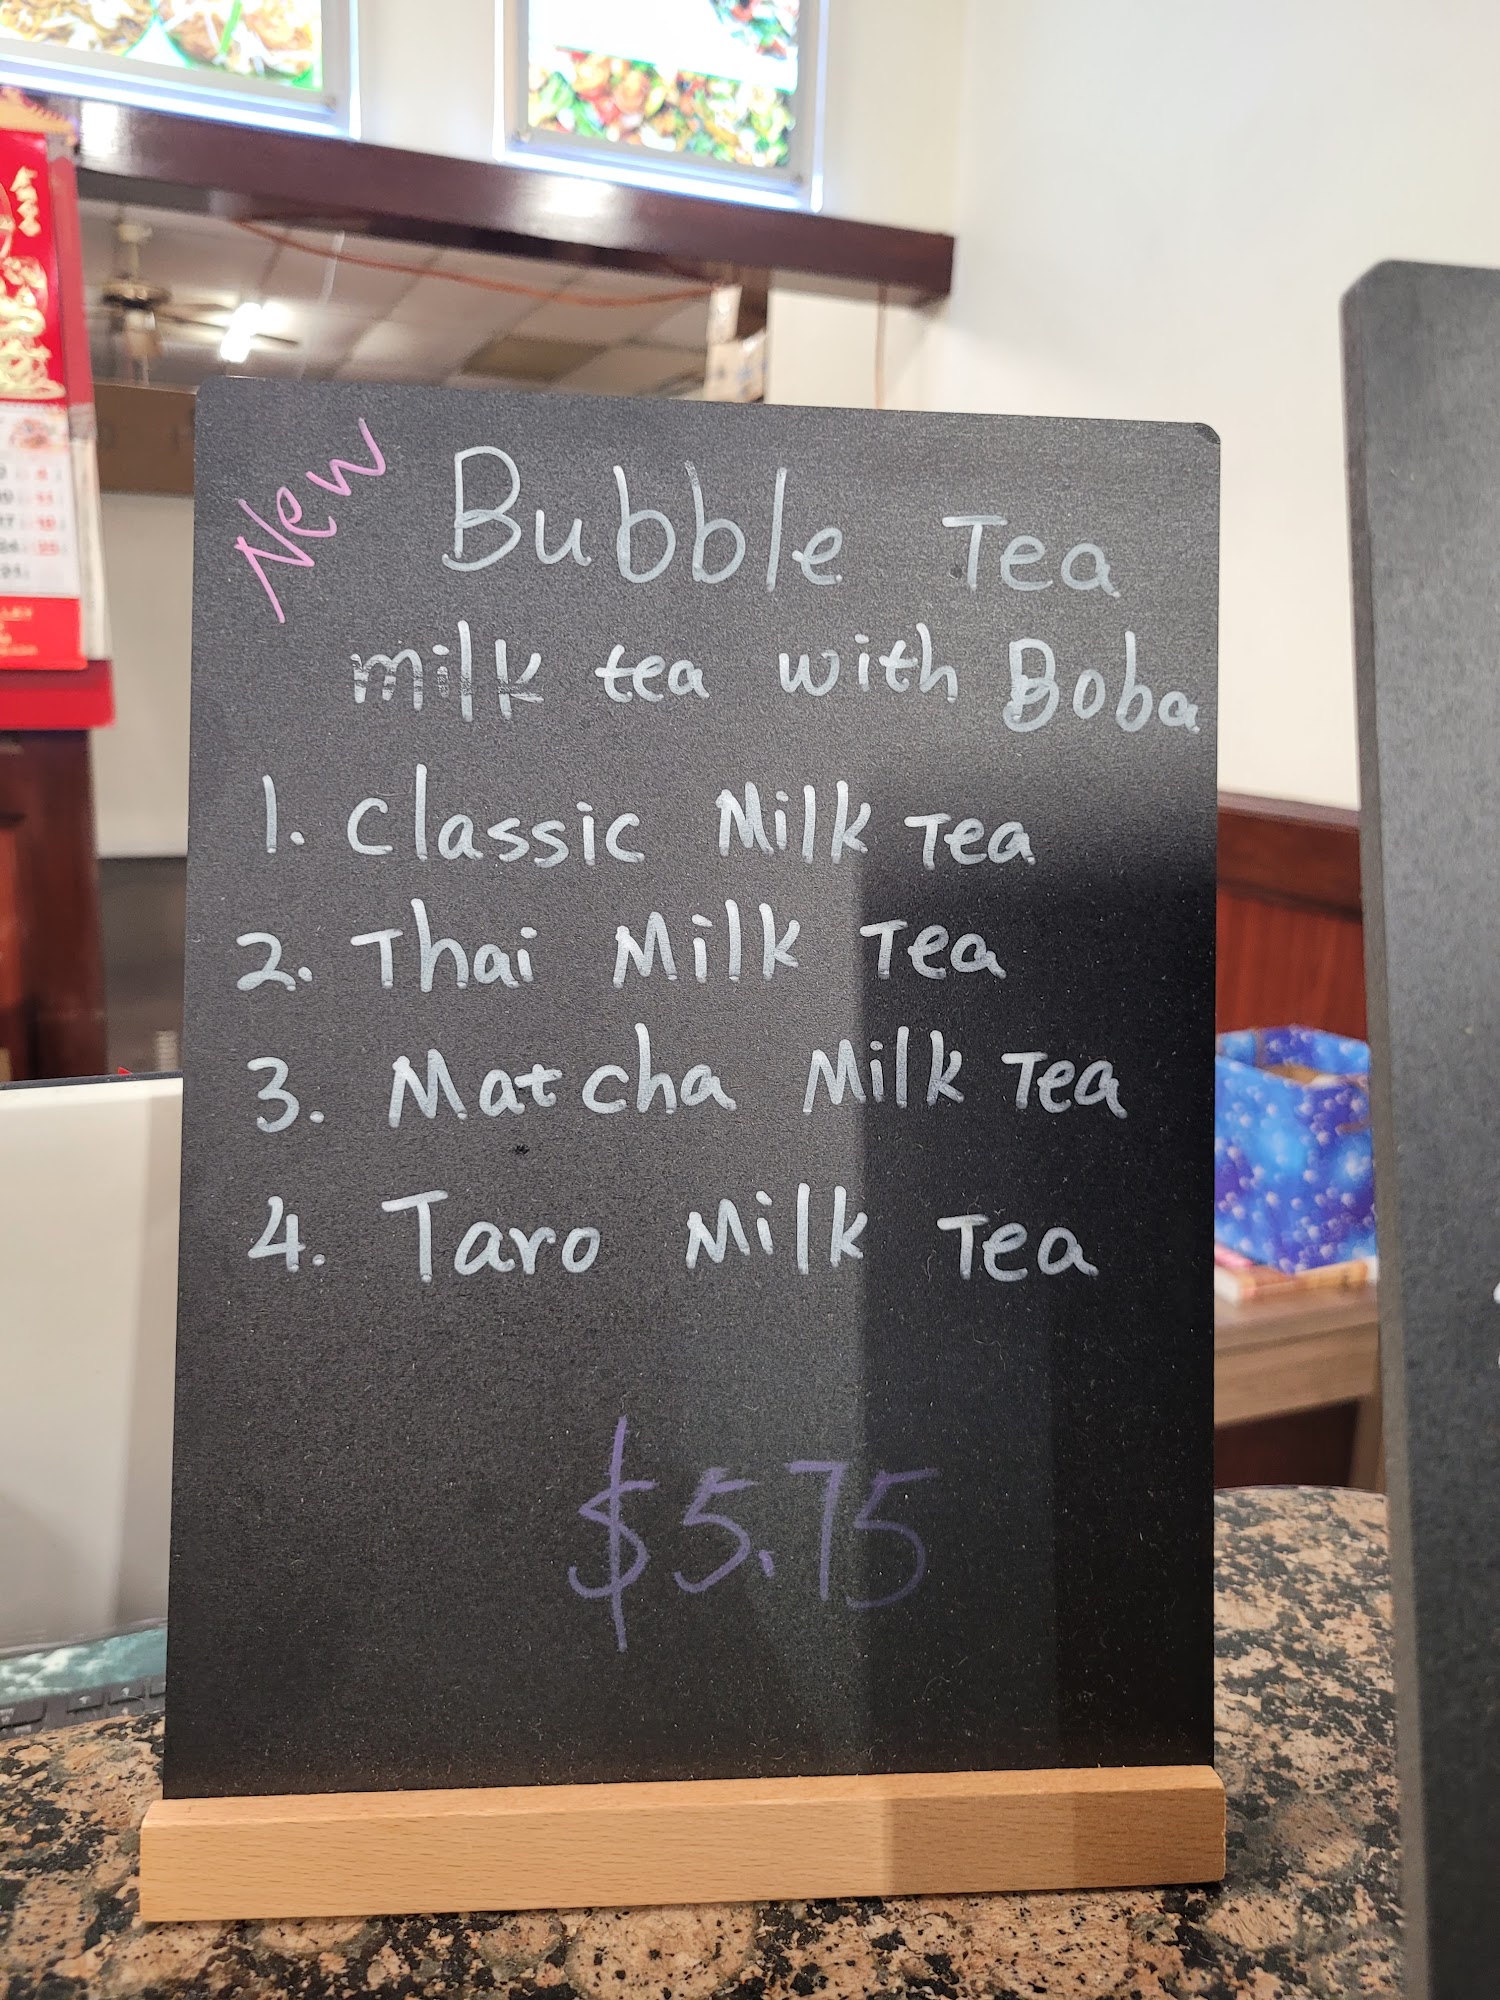 New
Bubble Tea
milk tea with Boba
1. Classic Milk Tea
2. Thai Milk Tea
3. Matcha Milk Tea
4. Taro Milk Tea
$5.75